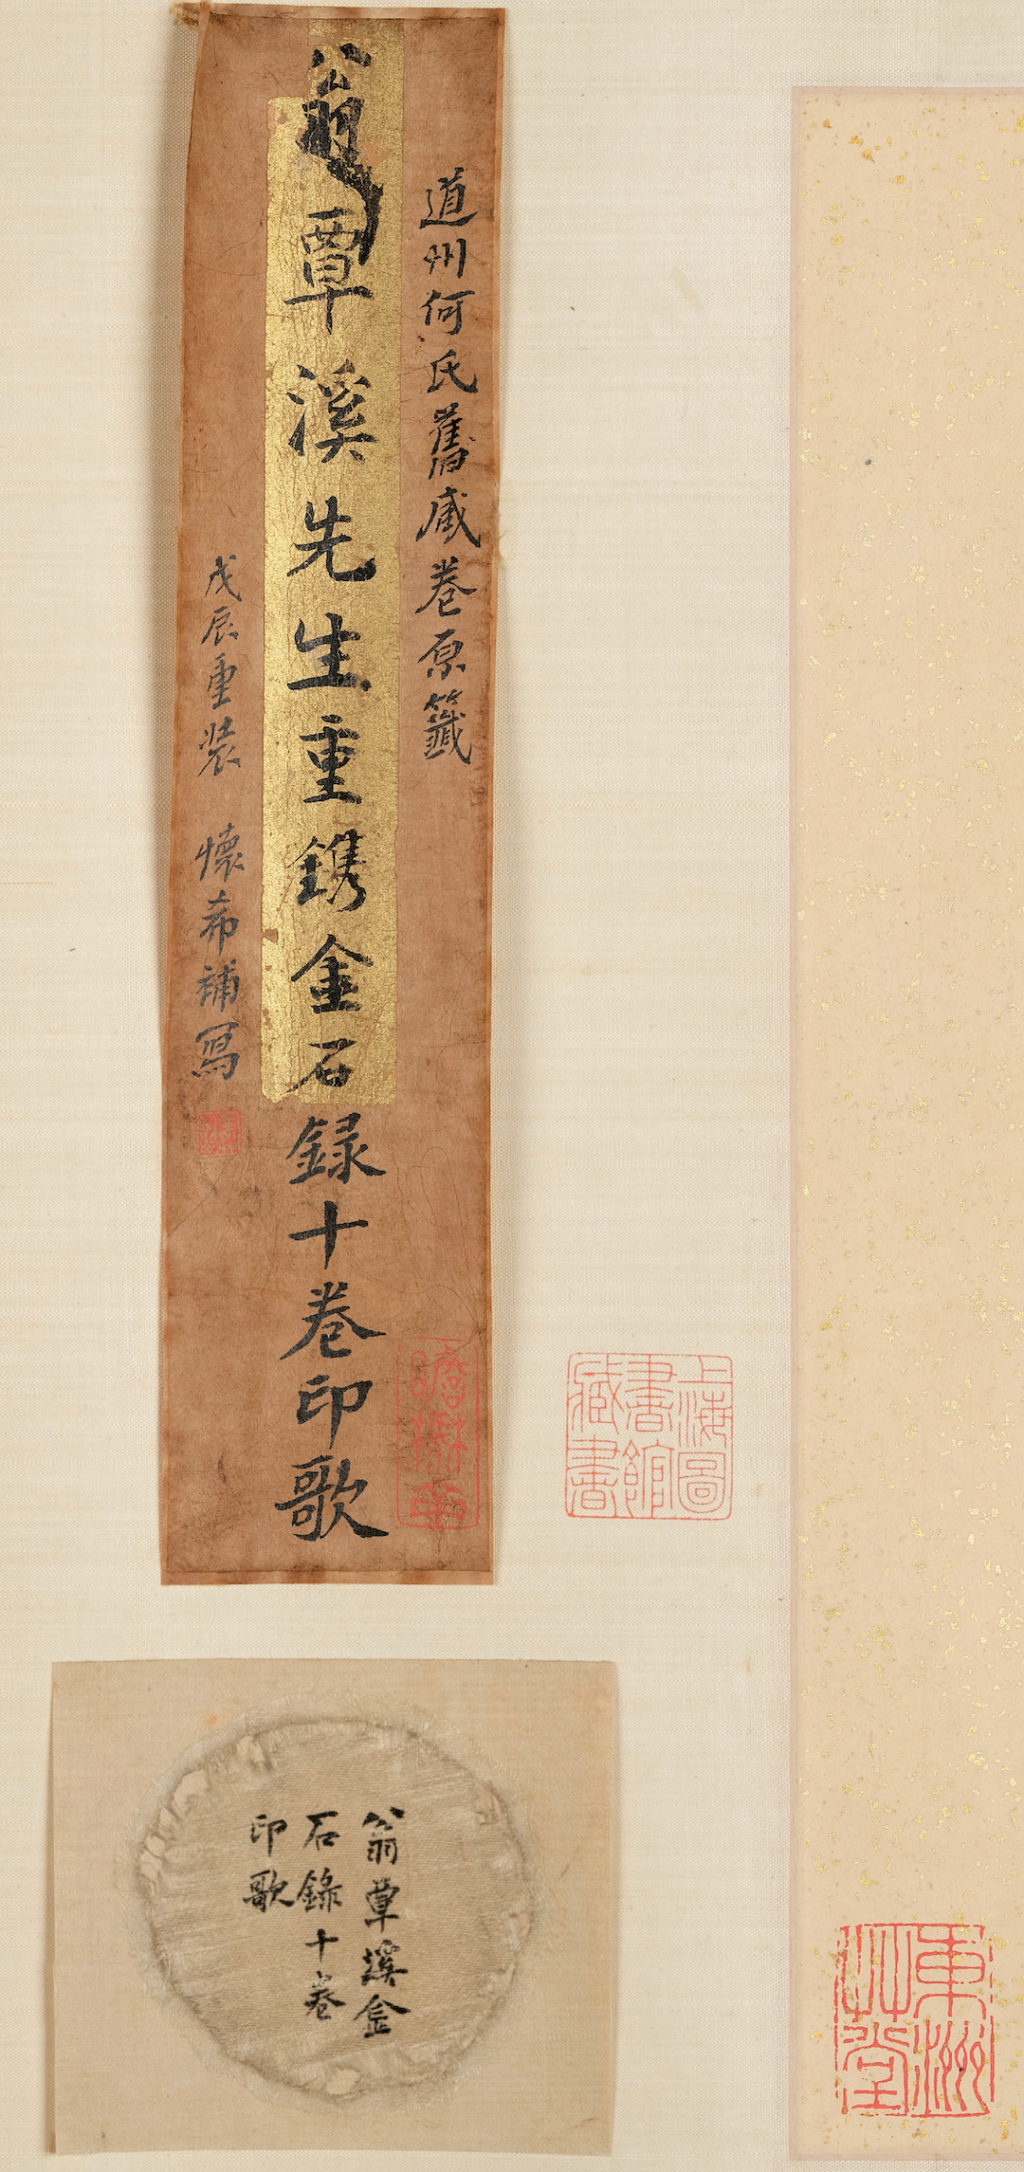 道州何氏舊臧卷原籤
翁覃溪先生重鐫金石録十卷印歌
戊辰重装 懷希補寫
上海圖
書館
臧書
翁覃溪金
石錄十卷
印歌
東洲
草堂